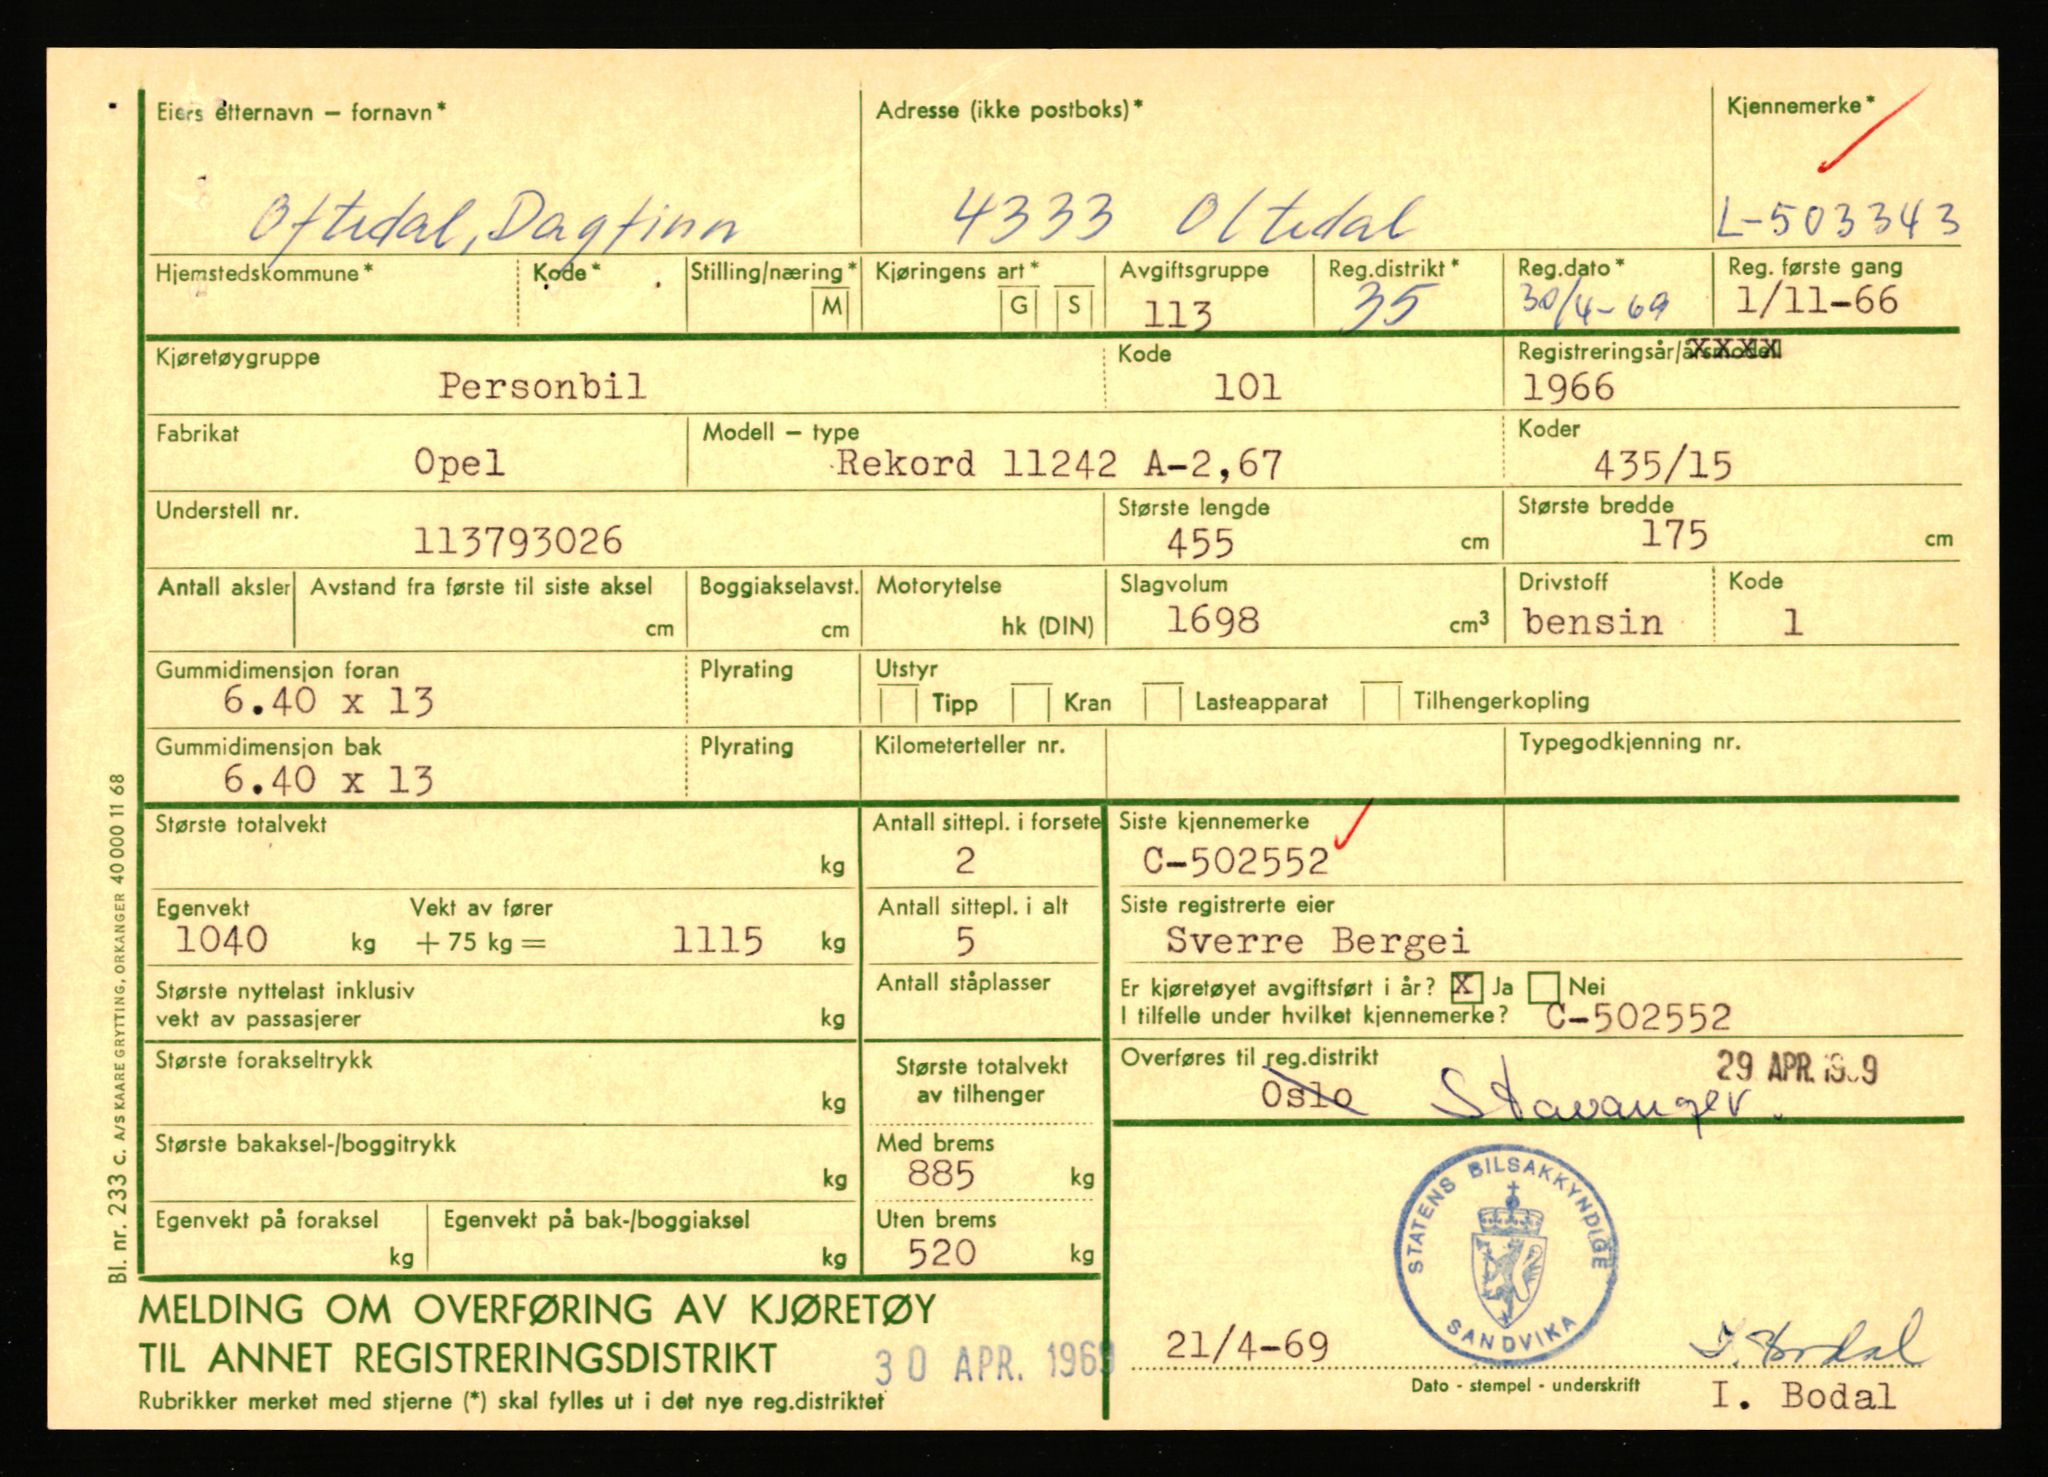 Eiers etternavn – fornavn* Adresse (ikke postboks)* Kjennemerke*
Oftedal, Dagfinn 4333 Oltedal L-503343
Hjemstedskommune* Kode* Stilling/næring* Kjøringens art* Avgiftsgruppe Reg.distrikt* Reg.dato* Reg. første gang
M G S 113 35 30/4-69 1/11-66
Kjøretøygruppe Kode Registreringsår/årsmodell
Personbil 101 1966
Fabrikat Modell – type Koder
Opel Rekord 11242 A-2,67 435/15
Understell nr. Største lengde Største bredde
113793026 455 cm 175 cm
Antall aksler Avstand fra første til siste aksel Boggiakselavst. Motorytelse Slagvolum Drivstoff Kode
cm cm hk (DIN) 1698 cm³ bensin 1
Gummidimensjon foran Plyrating Utstyr
6.40 x 13 Tipp Kran Lasteapparat Tilhengerkopling
Gummidimensjon bak Plyrating Kilometerteller nr. Typegodkjenning nr.
6.40 x 13
Største totalvekt Antall sittepl. i forsete Siste kjennemerke
kg 2 C-502552
Egenvekt Vekt av fører Antall sittepl. i alt Siste registrerte eier
1040 kg + 75 kg = 1115 kg 5 Sverre Bergei
Største nyttelast inklusiv Antall ståplasser Er kjøretøyet avgiftsført i år? X Ja Nei
vekt av passasjerer kg I tilfelle under hvilket kjennemerke? C-502552
Største forakseltrykk Største totalvekt Overføres til reg.distrikt 29 APR. 1969
kg av tilhenger Oslo Stavanger.
Største bakaksel-/boggitrykk Med brems
kg 885 kg
Egenvekt på foraksel Egenvekt på bak-/boggiaksel Uten brems
kg kg 520 kg
STATENS BILSAKKYNDIGE
SANDVIKA
MELDING OM OVERFØRING AV KJØRETØY
TIL ANNET REGISTRERINGSDISTRIKT 30 APR. 1969 21/4-69 I. Bodal
Rubrikker merket med stjerne (*) skal fylles ut i det nye reg.distriktet Dato - stempel - underskrift I. Bodal
Bl. nr. 233 c. A/S KAARE GRYTTING, ORKANGER 40 000 11 68